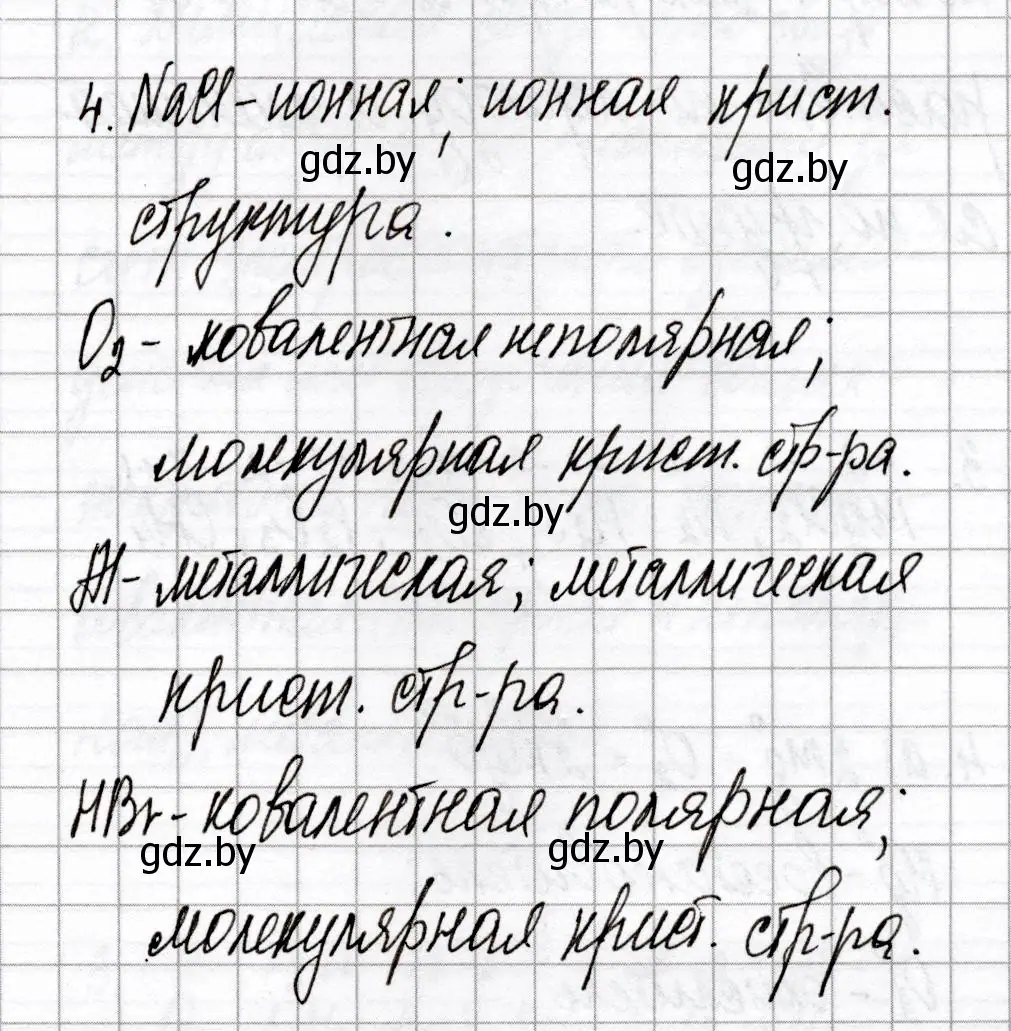 4. NaCl - ионная; ионная крист.
gdz.by gdz.by
структура.
O₂ - ковалентная неполярная;
молекулярная крист. стр-ра.
gdz.by
Al - металлическая; металлическая
крист. стр-ра.
HBr - ковалентная полярная;
gdz.by gdz.by
молекулярная крист. стр-ра.